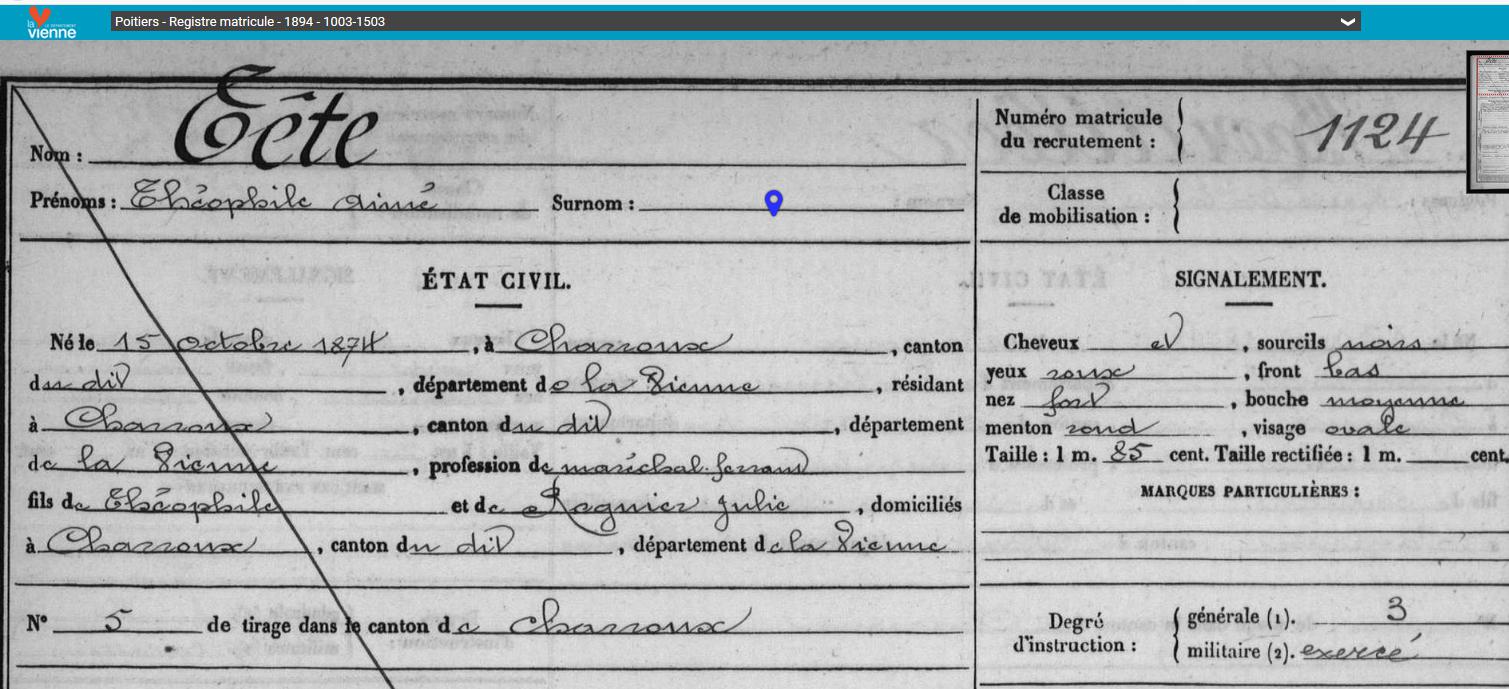 la vienne LE DÉPARTEMENT
Poitiers - Registre matricule - 1894 - 1003-1503
Nom : Tête
Prénoms : Théophile Aimé Surnom :
Numéro matricule du recrutement : 1124
Classe de mobilisation :
ÉTAT CIVIL.
Né le 15 octobre 1874, à Charroux, canton
du dit, département de la Vienne, résidant
à Charroux, canton du dit, département
de la Vienne, profession de maréchal-ferrant
fils de Théophile et de Ragnier Julie, domiciliés
à Charroux, canton du dit, département de la Vienne
N° 5 de tirage dans le canton de Charroux
SIGNALEMENT.
Cheveux et, sourcils noirs
yeux roux, front bas
nez fort, bouche moyenne
menton rond, visage ovale
Taille : 1 m. 85 cent. Taille rectifiée : 1 m. cent.
MARQUES PARTICULIÈRES :
Degré d'instruction : générale (1). 3
militaire (2). exercé